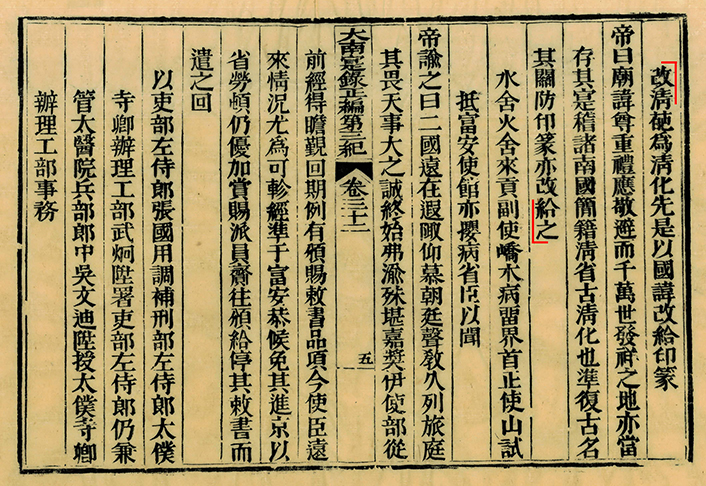 改淸葩爲淸化先是以國諱改給印篆
帝曰廟諱尊重禮應敬避而千萬世發祥之地亦當
存其寔稽諸南國簡籍淸省古淸化也準復古名
其關防印篆亦改給之
水舍火舍來貢副使嶠木病畱界首正使山試
抵富安使館亦攖病省臣以聞
帝諭之曰二國遠在遐陬仰慕朝廷聲敎久列旅庭
其畏天事大之誠終始弗渝殊堪嘉奬伊使部從
大南寔錄正編第三紀 卷三十二 五
前經得瞻覲回期例有頒賜敕書品項今使臣遠
來情況尤爲可軫經準于富安恭候免其進京以
省勞頓仍優加賞賜派員齎往頒給停其敕書而
遣之回
以吏部左侍郎張國用調補刑部左侍郎太僕
寺卿辦理工部武炯陞署吏部左侍郎仍兼
管太醫院兵部郎中吳文迪陞授太僕寺卿
辦理工部事務